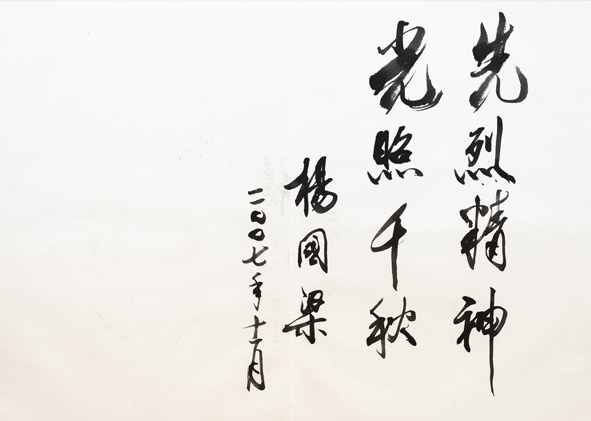 先烈精神
光照千秋
楊國梁
二〇〇七年十一月